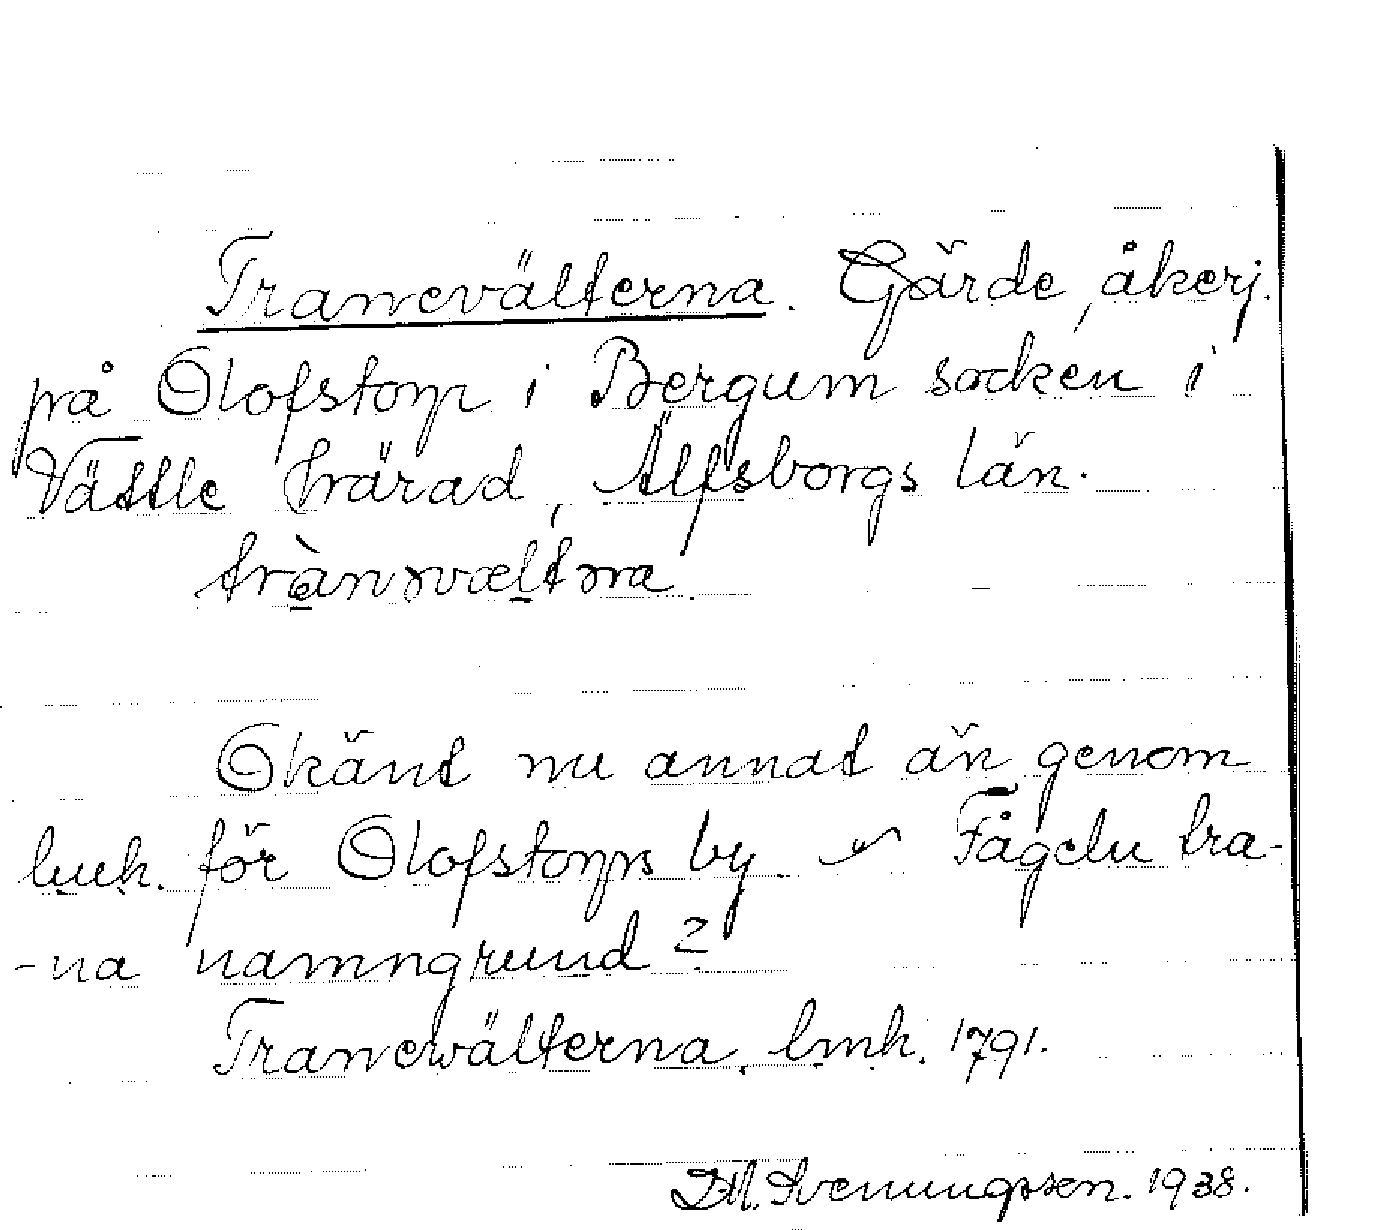 Tranevälterna. Gärde, åkerj.
på Olofstorp i Bergum socken i
Vättle härad, Älfsborgs län.
trànəvæltəɳa.
Okänt nu annat än genom
lmk. för Olofstorps by. Fågeln tra-
-na namngrund?
Tranewälterna. lmk. 1791.
Svenungsson. 1938.